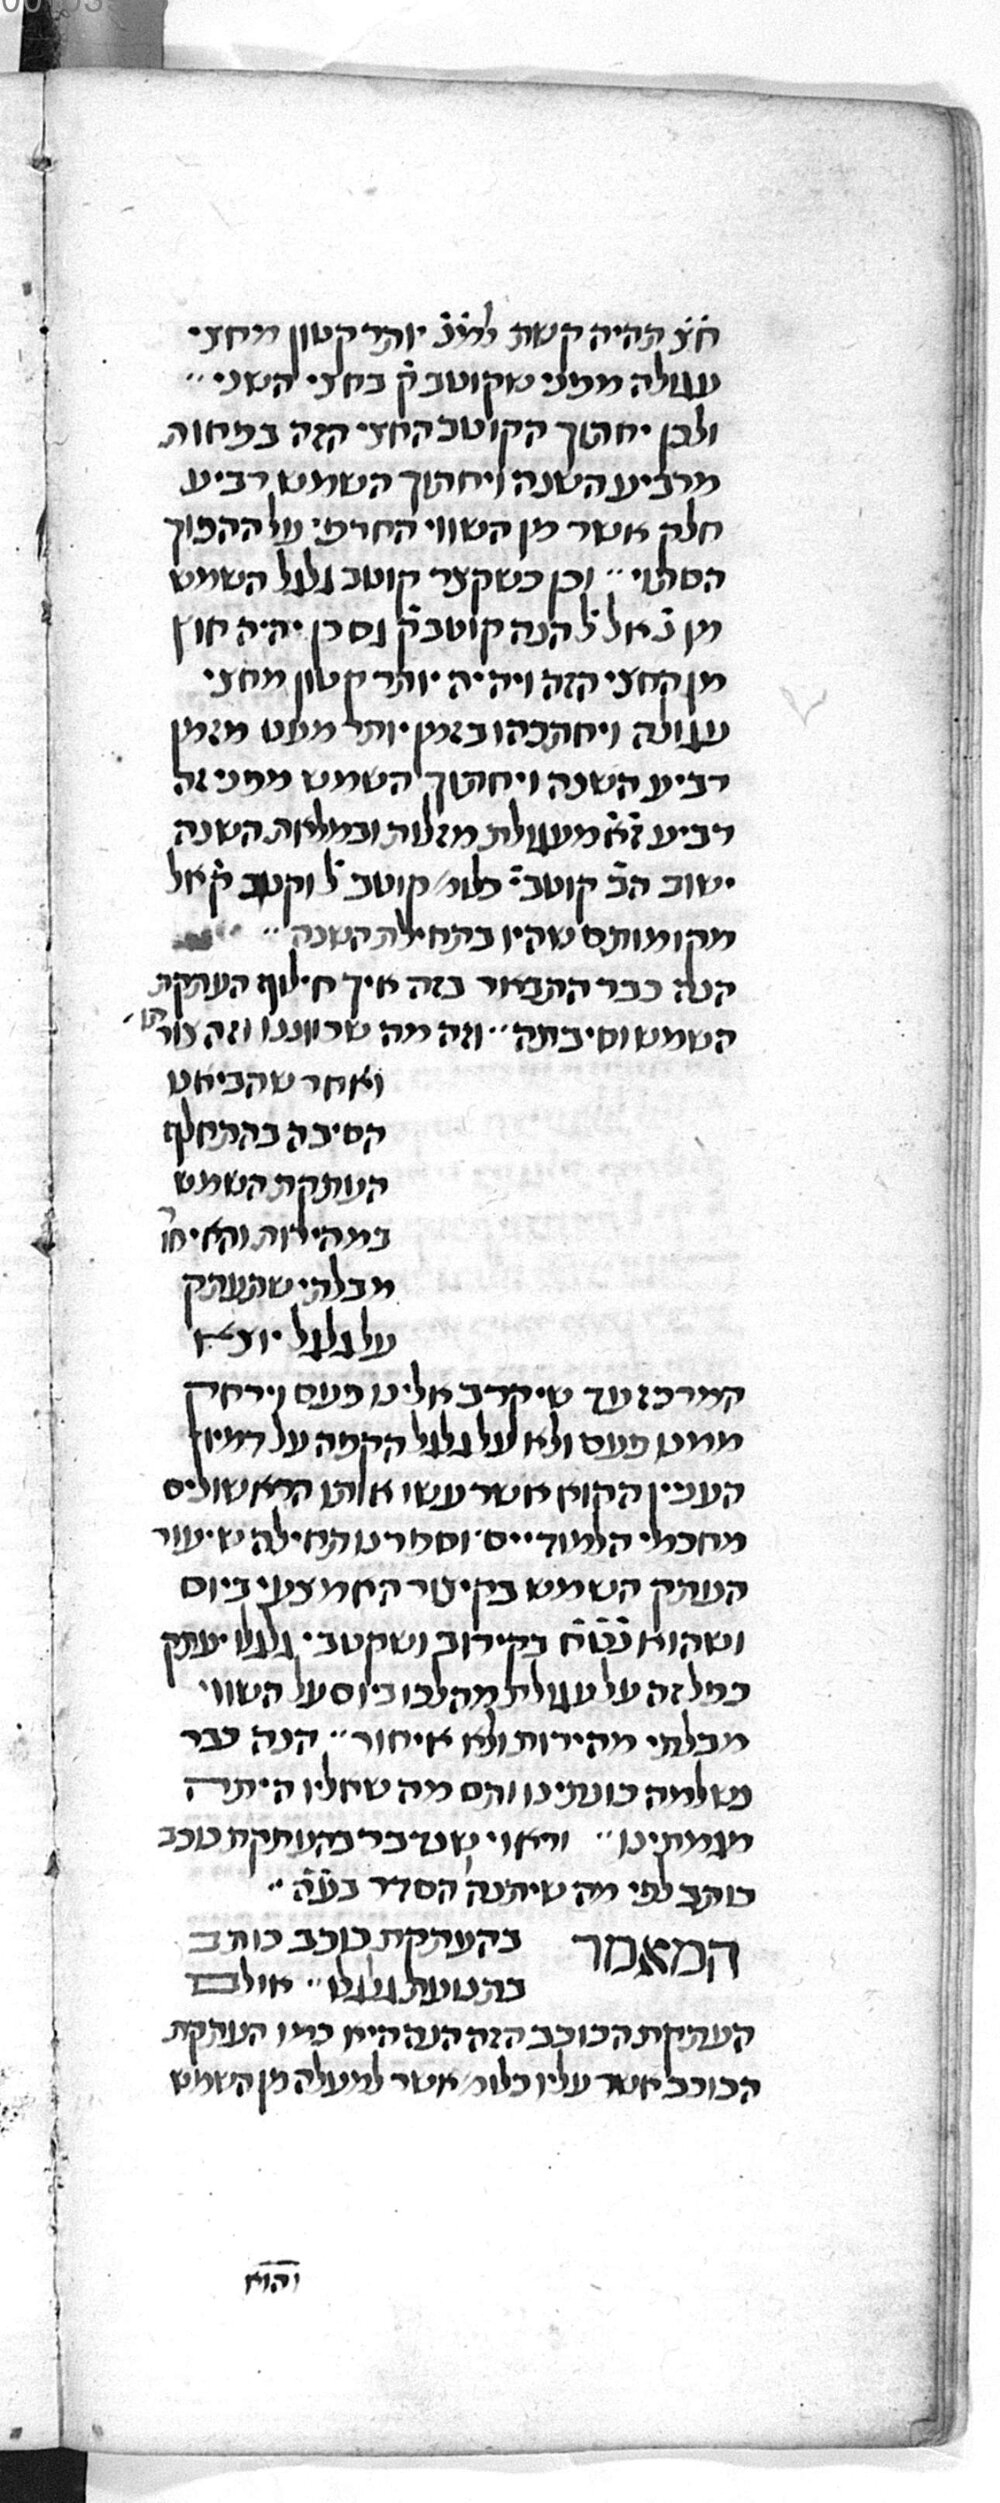 חצ תהיה קשת למכ יותר קטון מחצי
עגולה מפני שקוטב ק בחצי השני
ולכן יחתוך הקוטב החצי הזה בפחות
מרביע השנה ויחתוך השמש רביע
חלק אשר מן השווי החרפי על ההפוך
הסתוי וכן כשקצר קוטב גלגל השמש
מן כ אל ל הנה קוטב ק גם כן יהיה חוץ
מן החצי הזה ויהיה יותר קטון מחצי
עגולה ויחתכהו בזמן יותר מעט מזמן
רביע השנה ויחתוך השמש מפני זה
רביע זא מעגולת מזלות ובמלאת השנה
ישוב הב קוטב כלומ׳ קוטב ל וקוטב ק אל
מקומותם שהיו בתחילת השנה
הנה כבר התבאר בזה איך חילוף העתקת
השמש וסיבתה וזה מה שכווננו וזה צורתו
ואחר שהביאנו
הסיבה בהתחלף
העתקת השמש
במהירות והאיחור
מבלתי שתעתק
על גלגל יוצא
המרכז עד שיקרב אלינו פעם וירחק
ממנו פעם ולא על גלגל הקפה על דמיון
העניין ההוא אשר עשו אותו הראשונים
מחכמי הלמודיים וספרנו תחילה שיעור
העתק השמש בקיצור האמצעי ביום
ושהוא נטח בקירוב ושקטבי גלגלו יעתק
כמל זה על עגולת מהלכו ביום על השווי
מבלתי מהירות ולא איחור הנה כבר
נשלמה כונתינו ותם מה שאליו היתה
מגמתינו וראוי שנדבר בהעתקת כוכב
כותב לפי מה שיתנה הסדר בעה
המאמר בהעתקת כוכב כותב
בתנועת גלגלו אולם
העתקת הכוכב הזה הנה היא כמו העתקת
הכוכב אשר עליו כלומ׳ אשר למעלה מן השמש
והוא